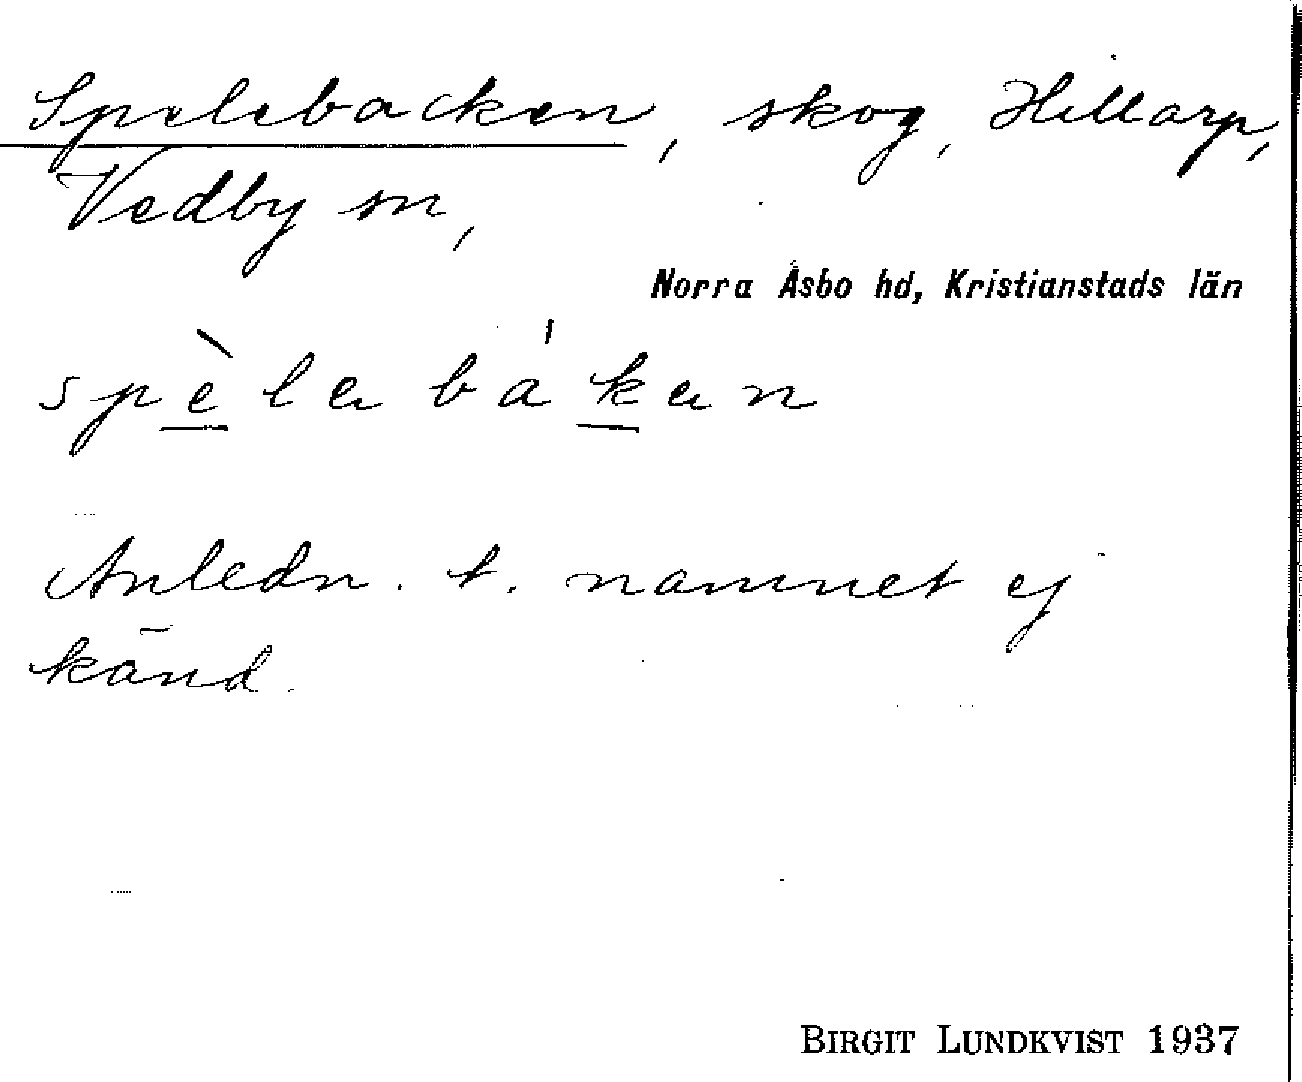 Spelebacken, skog, Hillarp,
Vedby sn,
Norra Åsbo hd, Kristianstads län
spèlabákan
Anledn. t. namnet ej
känd.
BIRGIT LUNDKVIST 1937